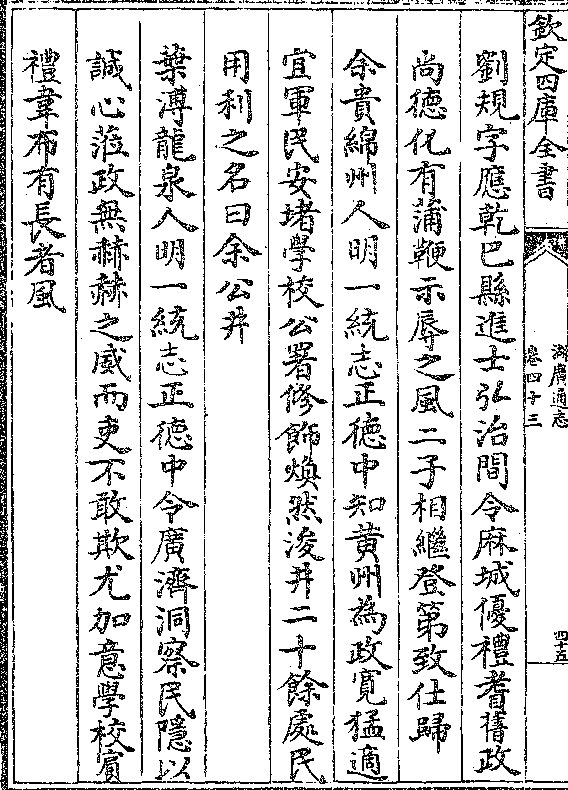 欽定四庫全書
湖廣通志
卷四十三
四十五
劉規字應乾巴縣進士弘治間令麻城優禮耆舊政
尚德化有蒲鞭示辱之風二子相繼登第致仕歸
余貴綿州人明一統志正德中知黄州為政寛猛適
宜軍民安堵學校公署修飾煥然浚井二十餘處民
用利之名曰余公井
葉溥龍泉人明一統志正德中令廣濟洞察民隱以
誠心蒞政無赫赫之威而吏不敢欺尤加意學校賔
禮韋布有長者風